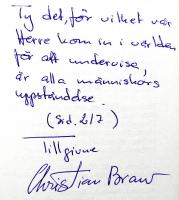 Ty det, för vilket vår
Herre kom in i världen
för att undervisa,
är alla människors
uppståndelse.
(sid. 217)
Tillgivne
Christian Braw